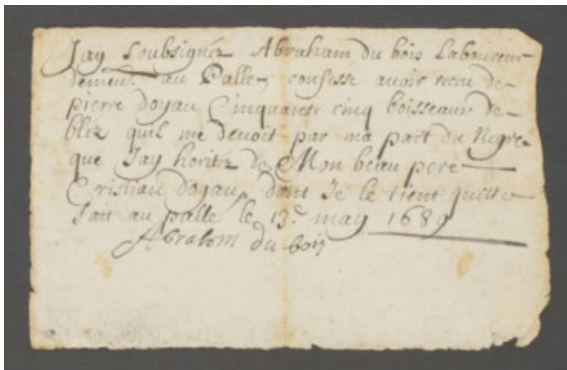 Jay Soubsigné Abraham du bois Laboureur
demeur. au Palle confesse avoir receu de
pierre doyau Cinquante cinq boisseaux de
blez quil me devoit par ma part du Negre
que Jay herite de Mon beau pere
Cristian doyau, dont Je le tient quitte
fait au palle le 13e may 1689
Abraham du bois